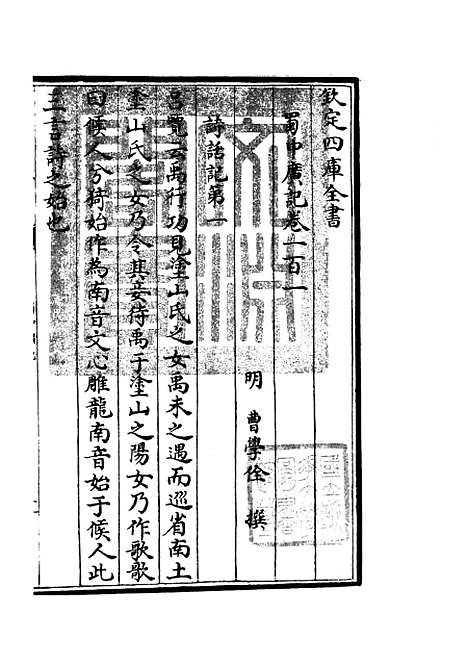 欽定四庫全書
蜀中廣記卷一百一
明 曹學佺 撰
詩話記第一
呂覽云禹行功見塗山氏之女禹未之遇而巡省南土
塗山氏之女乃令其妾待禹于塗山之陽女乃作歌歌
曰候人兮猗始作為南音文心雕龍南音始于候人此
三言詩之始也